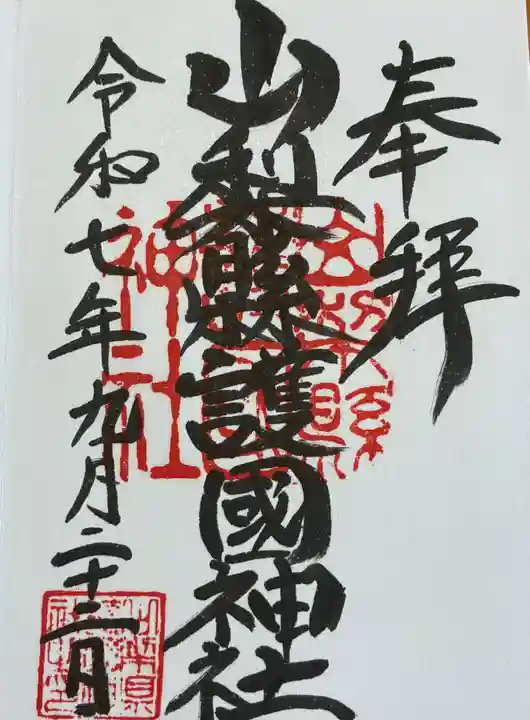 奉拝
山梨縣護國神社
令和七年九月二十二日